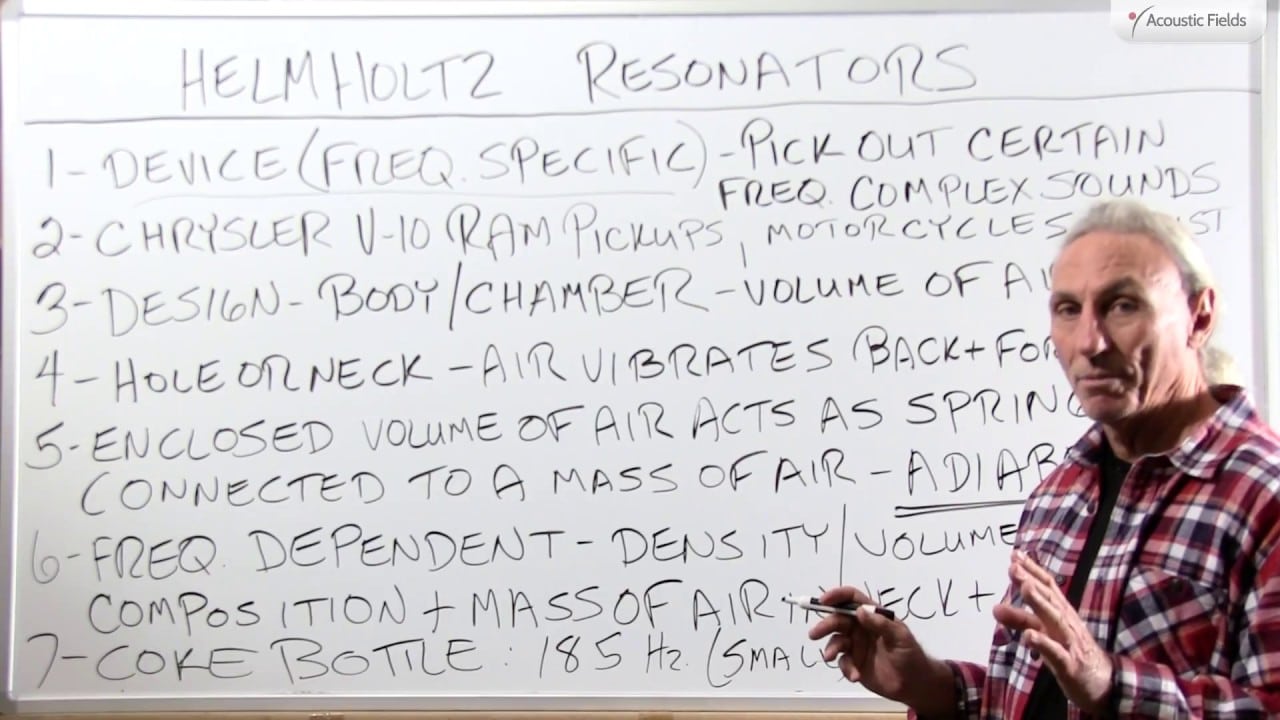 Acoustic Fields
HELMHOLTZ RESONATORS
1- DEVICE (FREQ. SPECIFIC) - PICK OUT CERTAIN
FREQ. COMPLEX SOUNDS
2- CHRYSLER V-10 RAM PICKUPS, MOTORCYCLES
3- DESIGN - BODY/CHAMBER - VOLUME OF
4- HOLE OR NECK - AIR VIBRATES BACK +
5- ENCLOSED VOLUME OF AIR ACTS AS SPRING
CONNECTED TO A MASS OF AIR -
6- FREQ. DEPENDENT - DENSITY/VOLUME
COMPOSITION + MASS OF AIR NECK +
7- COKE BOTTLE : 185 Hz. (SMALL